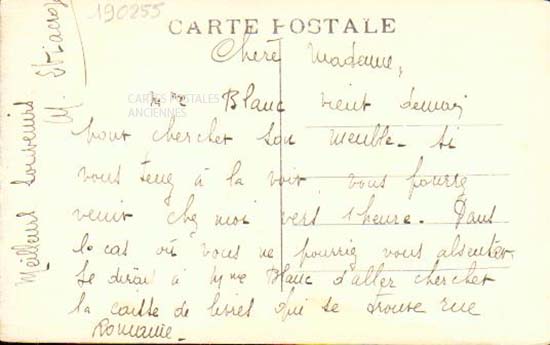 190255
CARTE POSTALE
Chère Madame,
Mme Blanc vient demain
CARTES POSTALES
ANCIENNES
pour chercher son meuble. Si
vous tenez à la voir, vous pourriez
venir chez moi vers 1 heure. Dans
le cas où vous ne pourriez vous absenter
je dirai à Mme Blanc d'aller chercher
la caisse de livres qui se trouve rue
Romanie.
Meilleurs Souvenirs
M.